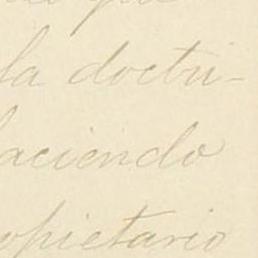 la doctri-
haciendo
opietario